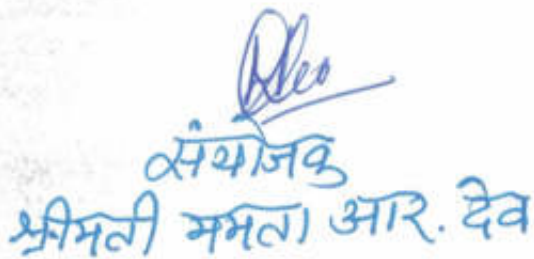 संयोजक
श्रीमती ममता आर. देव